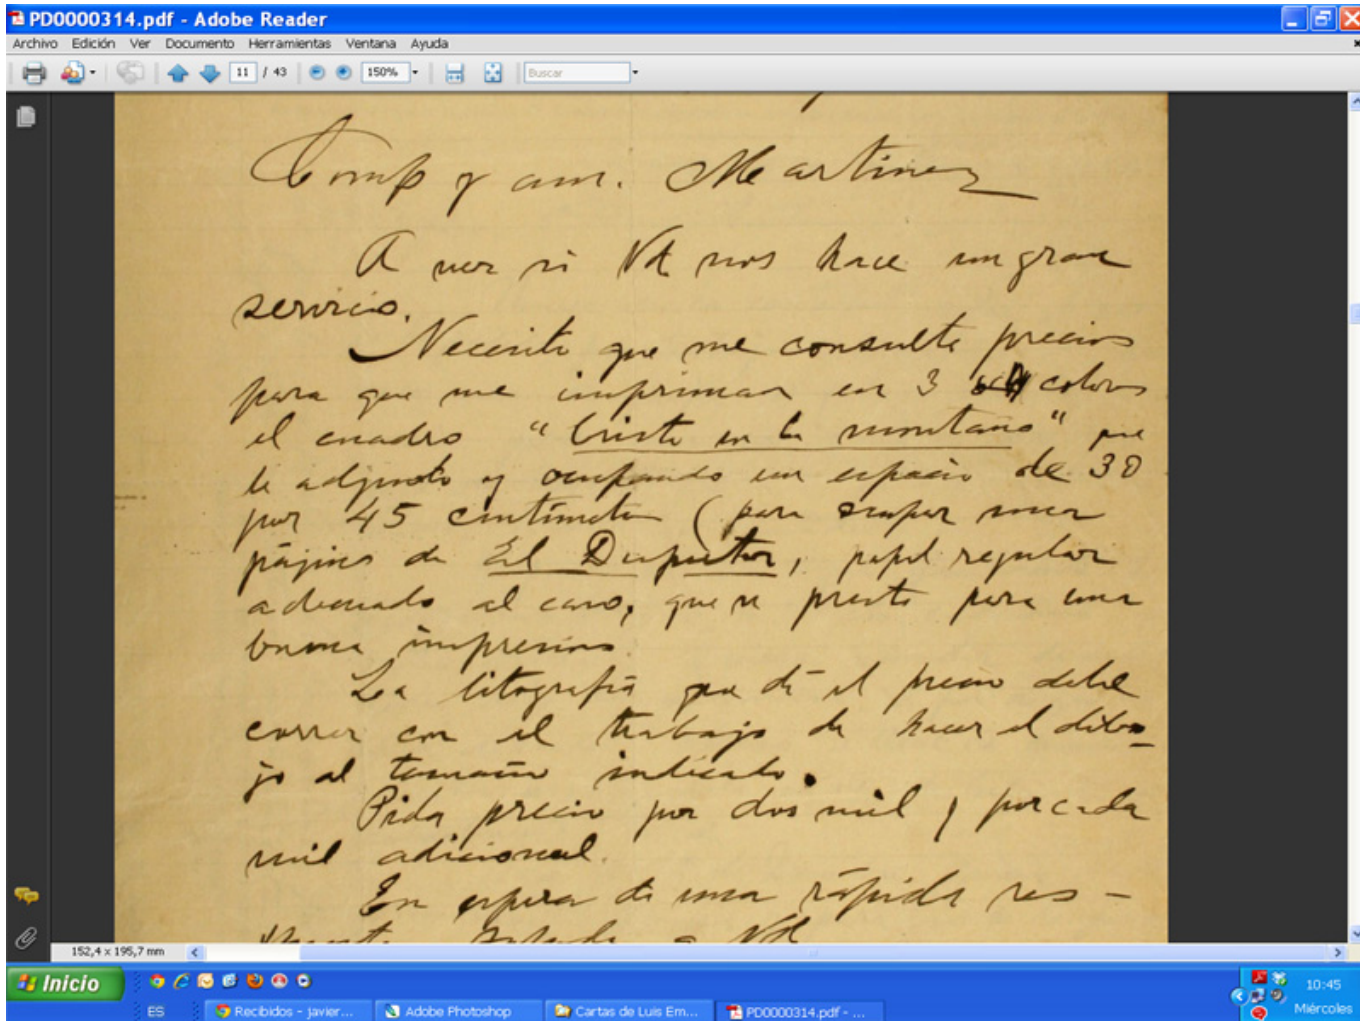 PD0000314.pdf - Adobe Reader
Archivo Edición Ver Documento Herramientas Ventana Ayuda
11 / 43 150% Buscar
Comp y am. Martinez
A ver si Vd nos hace un gran
servicio.
Necesito que me consulte precios
para que me impriman en 3 colores
el cuadro "Cristo en la montaña" que
le adjunto y ocupando un espacio de 30
por 45 centímetros (para ocupar una
página de El Despertar, papel regular
adecuado al caso, que se preste para una
buena impresión.
La litografía que dé el precio debe
correr con el trabajo de hacer el dibu-
jo al tamaño indicado.
Pida precio por dos mil y por cada
mil adicional.
En espera de una rápida res-
saluda a Vd
152,4 x 195,7 mm
Inicio
10:45
ES Recibidos - javier... Adobe Photoshop Cartas de Luis Em... PD0000314.pdf - ... Miércoles